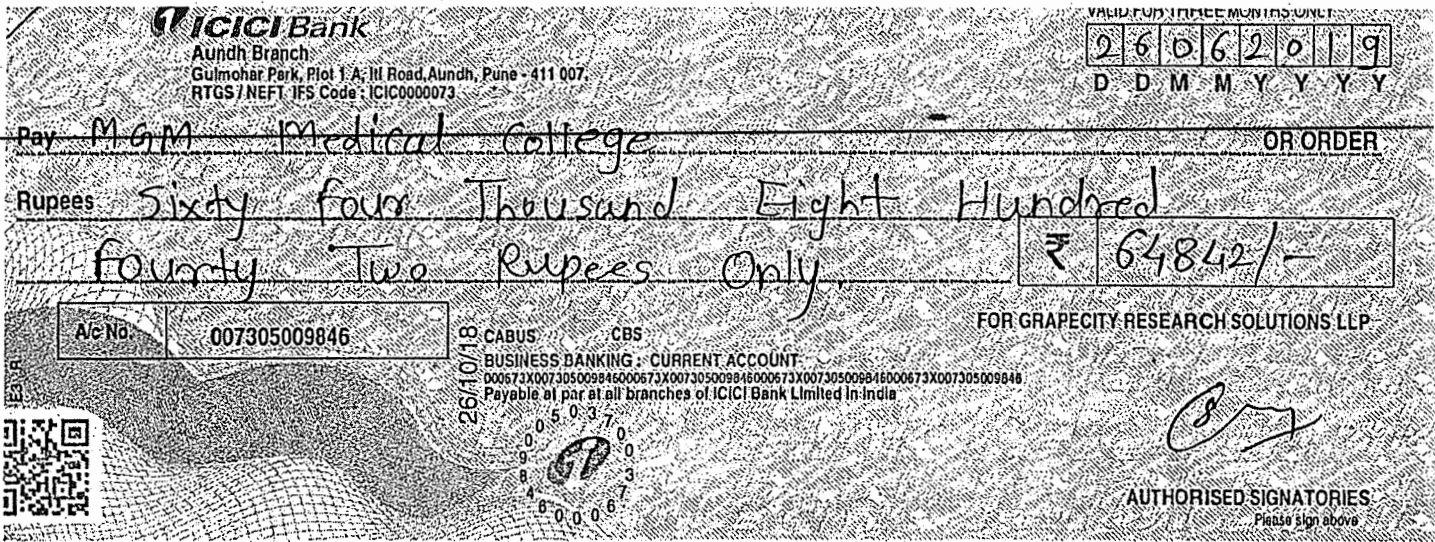 ICICI Bank
Aundh Branch
Gulmohar Park, Plot 1 A, ITI Road, Aundh, Pune - 411 007.
RTGS / NEFT IFS Code : ICIC0000073
VALID FOR THREE MONTHS ONLY
26062019
D D M M Y Y Y Y
Pay MGM Medical College OR ORDER
Rupees Sixty four Thousand Eight Hundred
Fourty Two Rupees Only.
₹ 64842/-
A/c No. 007305009846
26/10/18
CABUS CBS
BUSINESS BANKING : CURRENT ACCOUNT
000673X007305009846000673X007305009846000673X007305009846000673X007305009846
Payable at par at all branches of ICICI Bank Limited in India
FOR GRAPECITY RESEARCH SOLUTIONS LLP
AUTHORISED SIGNATORIES
Please sign above